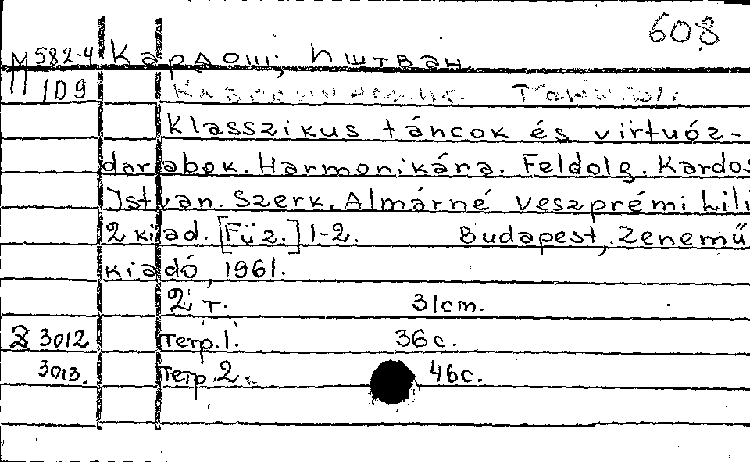 608
М 582-4 Кардош, Иштван.
109
Klasszikus táncok és virtuóz-
darabok. Harmonikára. Feldolg. Kardos
István. Szerk. Almárné Veszprémi Lili
2 kiad. [Füz.] 1-2. Budapest, Zenemű
kiadó, 1961.
2 т. 31cm.
3012 Тетр.1. 36с.
3013. Тетр.2. 46с.